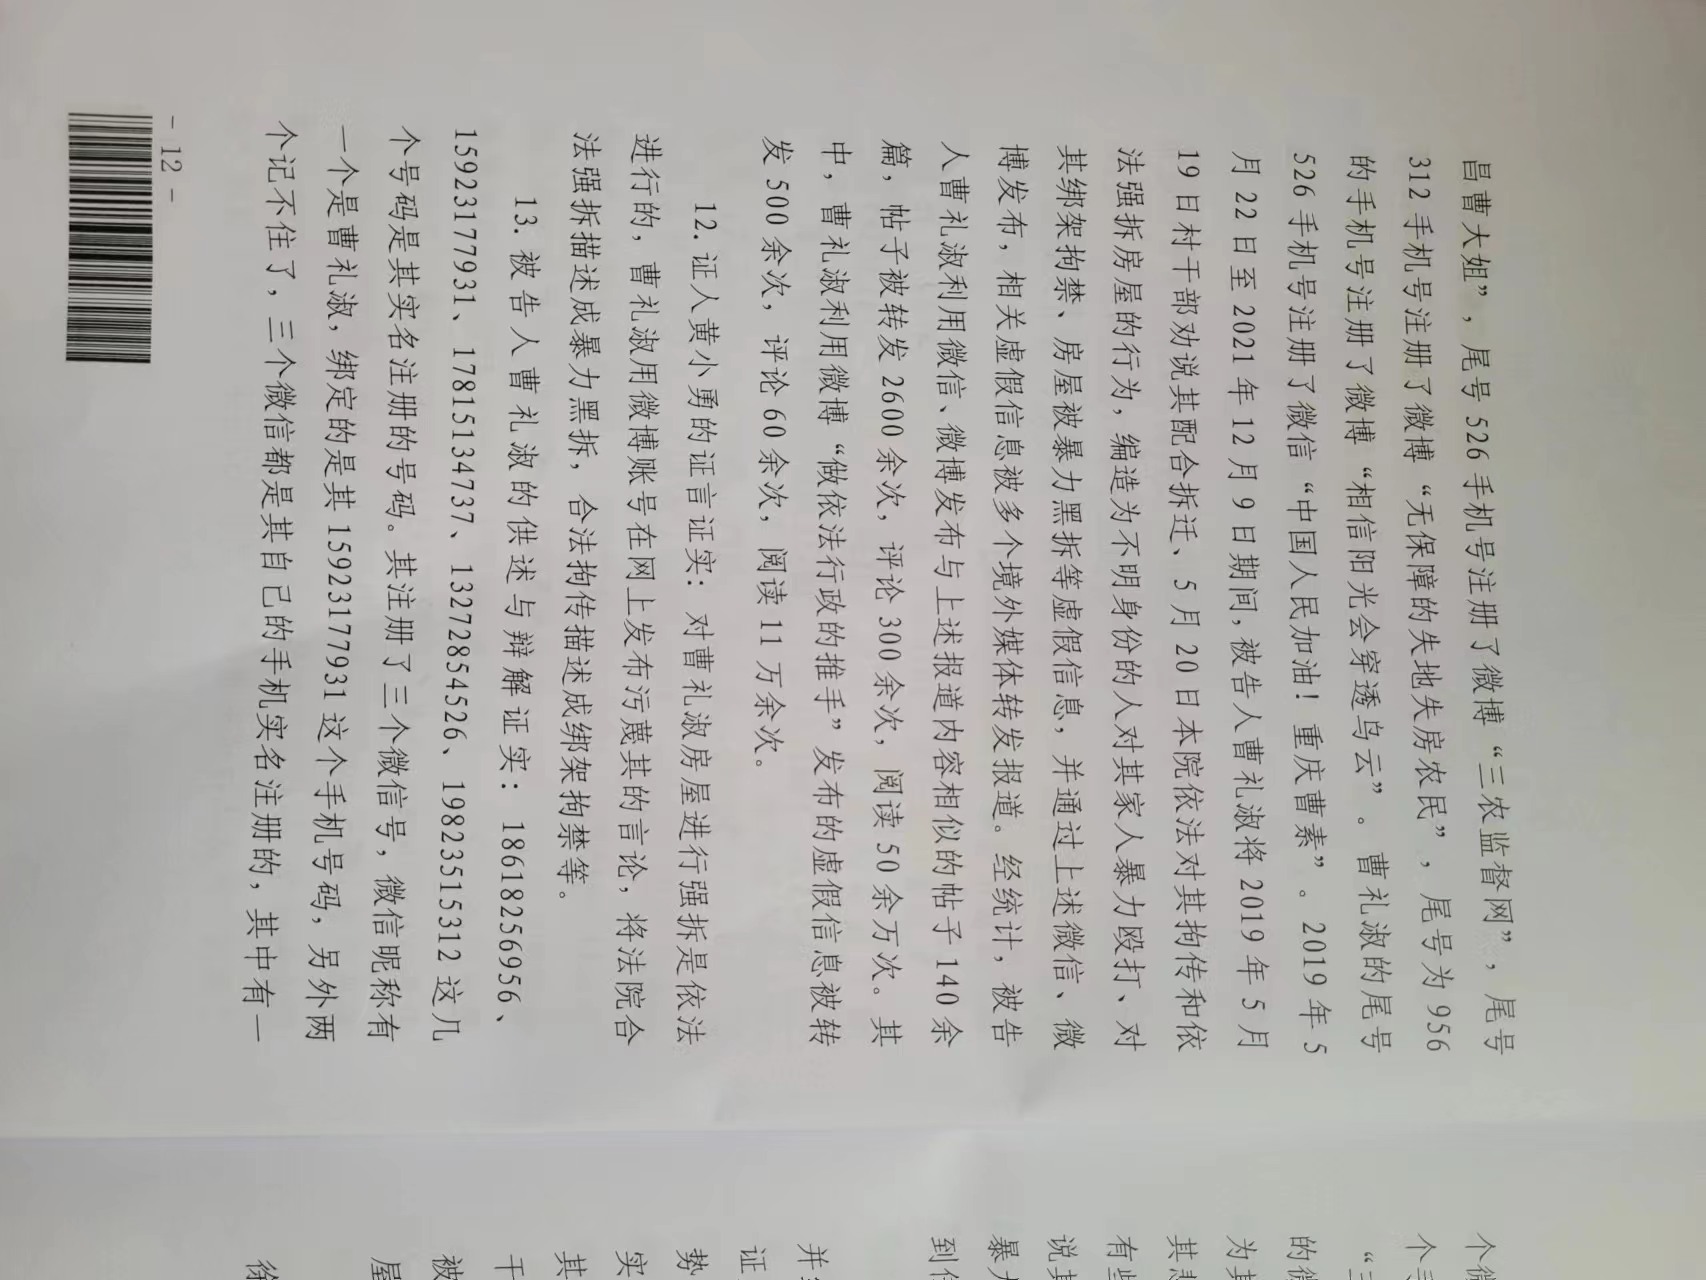 昌曹大姐”，尾号 526 手机号注册了微博“三农监督网”，尾号
312 手机号注册了微博“无保障的失地失房农民”，尾号为 956
的手机号注册了微博“相信阳光会穿透乌云”。曹礼淑的尾号
526 手机号注册了微信“中国人民加油！重庆曹素”。2019 年 5
月 22 日至 2021 年 12 月 9 日期间，被告人曹礼淑将 2019 年 5 月
19 日村干部劝说其配合拆迁、5 月 20 日本院依法对其拘传和依
法强拆房屋的行为，编造为不明身份的人对其家人暴力殴打、对
其绑架拘禁、房屋被暴力黑拆等虚假信息，并通过上述微信、微
博发布，相关虚假信息被多个境外媒体转发报道。经统计，被告
人曹礼淑利用微信、微博发布与上述报道内容相似的帖子 140 余
篇，帖子被转发 2600 余次，评论 300 余次，阅读 50 余万次。其
中，曹礼淑利用微博“做依法行政的推手”发布的虚假信息被转
发 500 余次，评论 60 余次，阅读 11 万余次。
12. 证人黄小勇的证言证实：对曹礼淑房屋进行强拆是依法
进行的，曹礼淑用微博账号在网上发布污蔑其的言论，将法院合
法强拆描述成暴力黑拆，合法拘传描述成绑架拘禁等。
13. 被告人曹礼淑的供述与辩解证实：18618256956、
15923177931、17815134737、13272854526、19823515312 这几
个号码是其实名注册的号码。其注册了三个微信号，微信昵称有
一个是曹礼淑，绑定的是其 15923177931 这个手机号码，另外两
个记不住了，三个微信都是其自己的手机实名注册的，其中有一
- 12 -
个微
个手
“三
的微
为其
其悲
有些
说其
暴力
到任
证
势
实
其
干
被
屋
徐